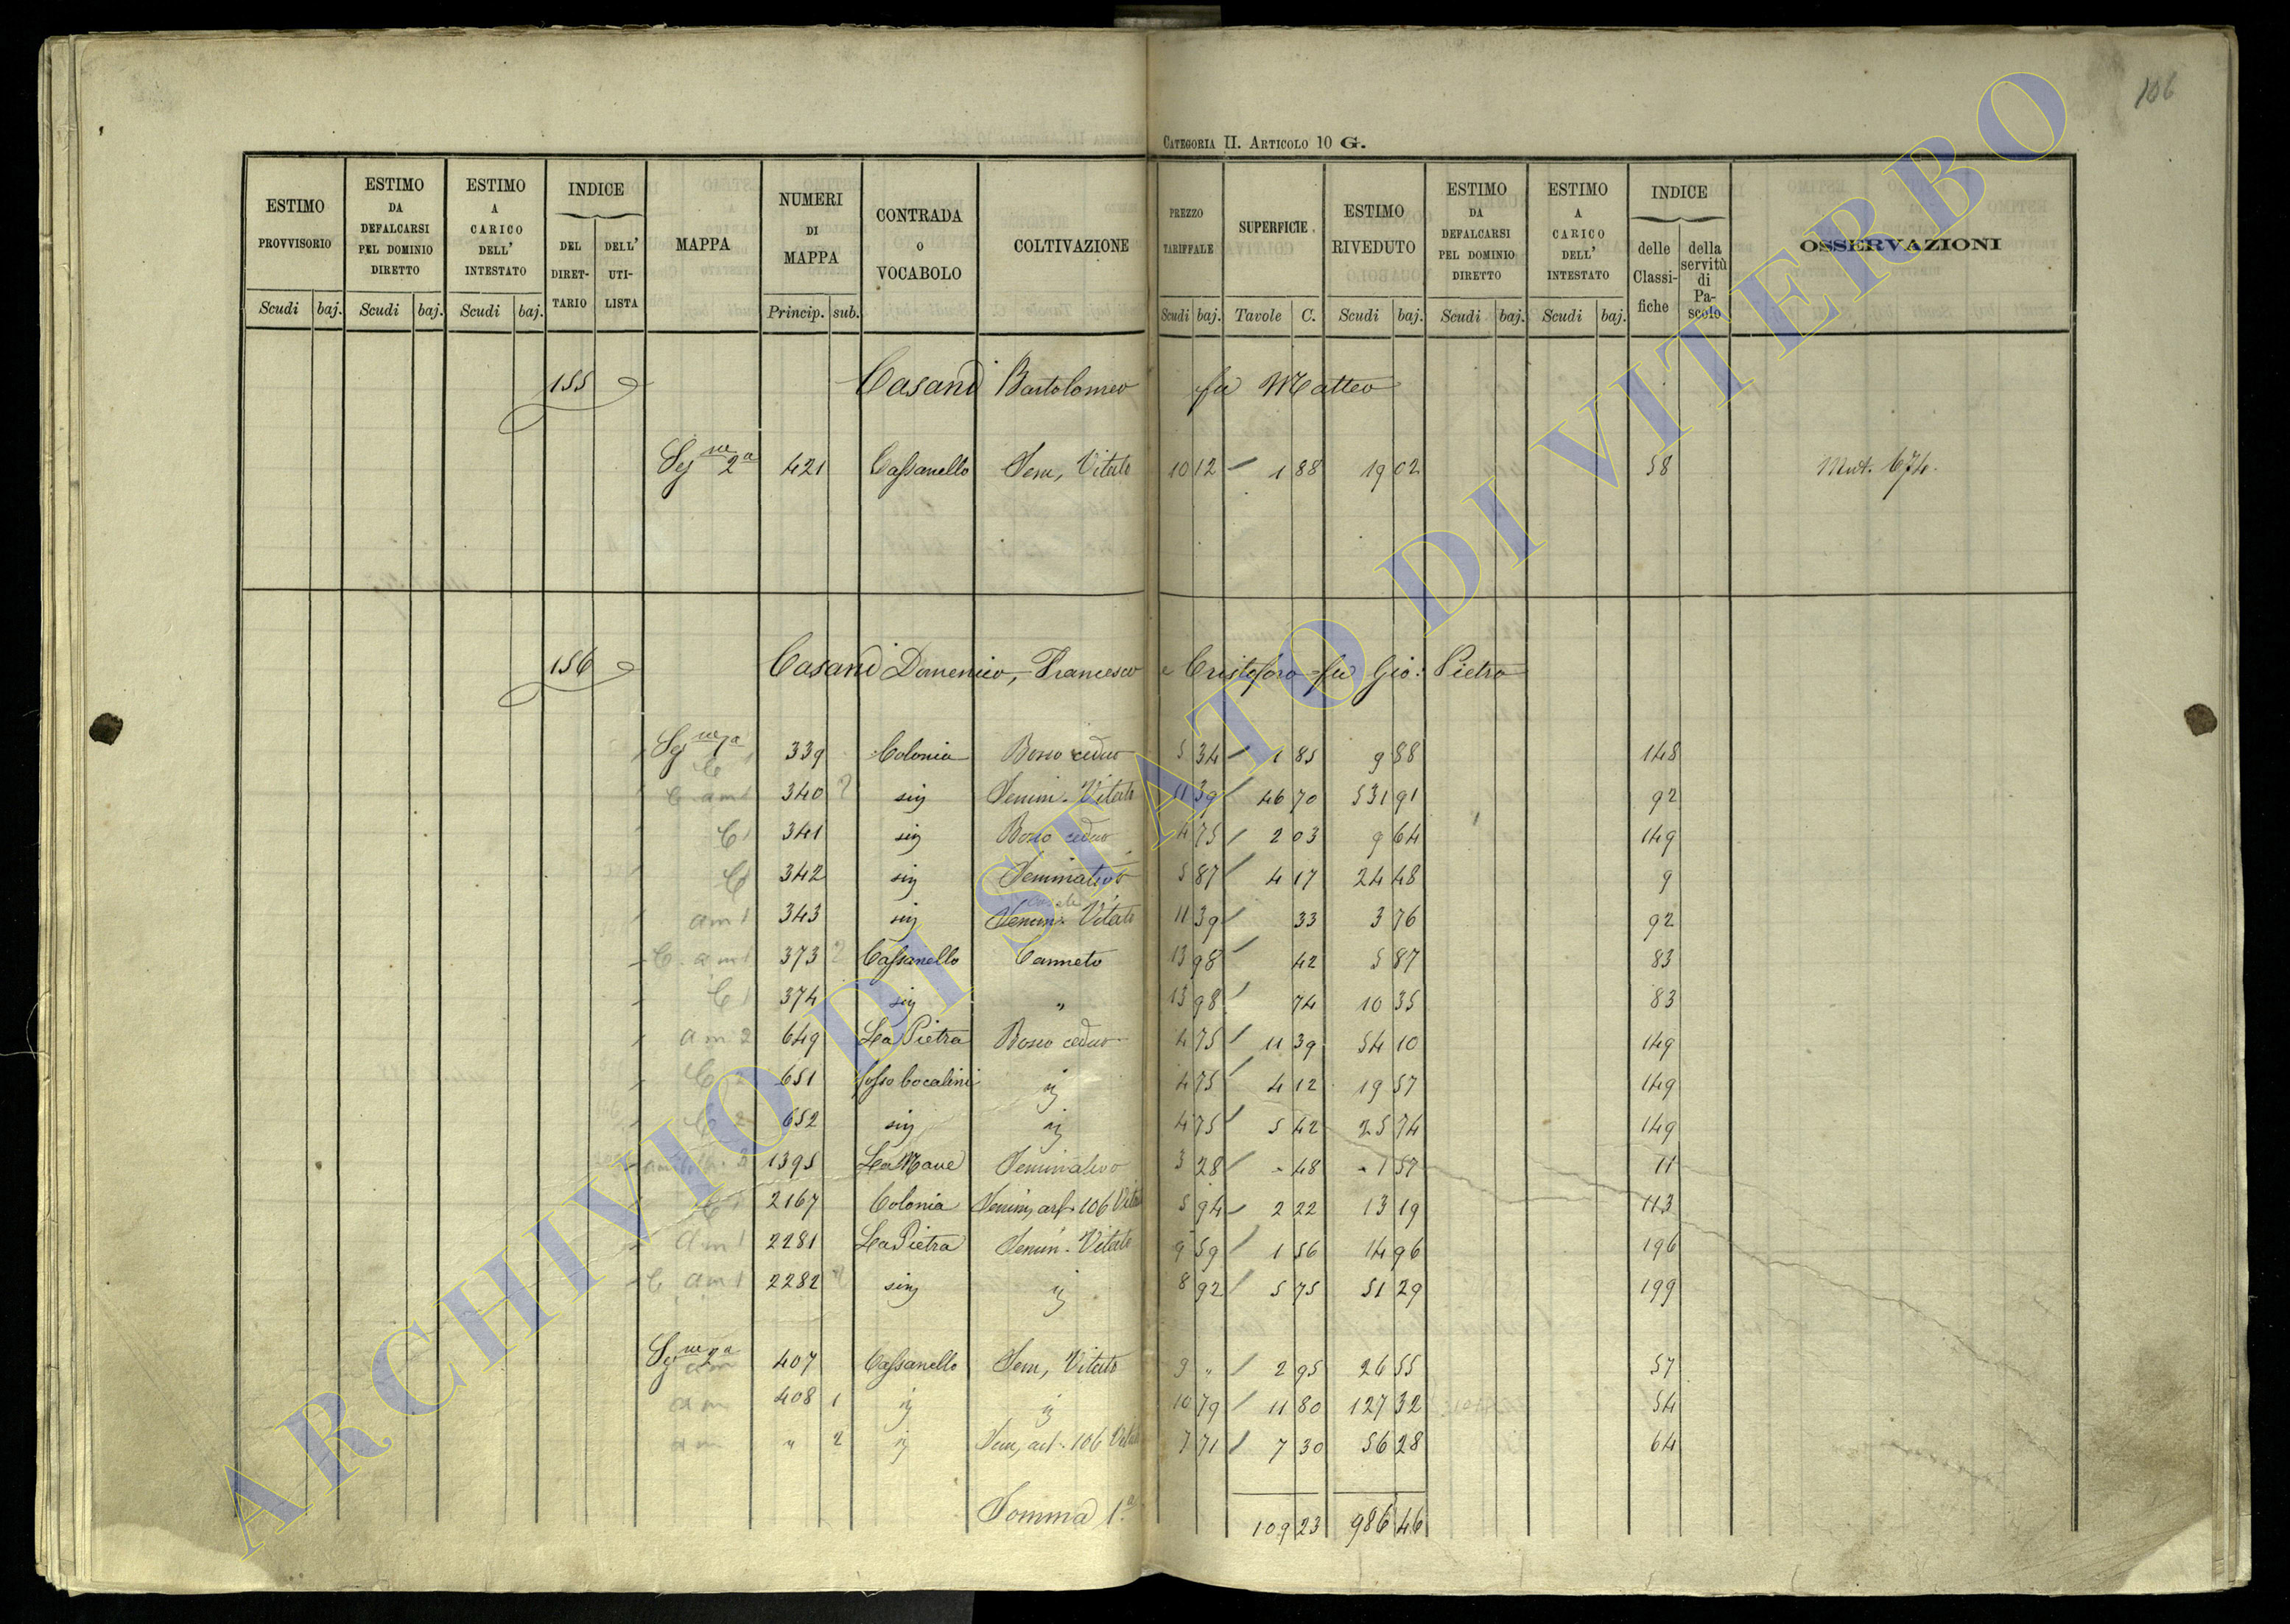 106
CATEGORIA II. ARTICOLO 10 G.
ESTIMO PROVVISORIO Scudi baj.
ESTIMO DA DEFALCARSI PEL DOMINIO DIRETTO Scudi baj.
ESTIMO A CARICO DELL' INTESTATO Scudi baj.
INDICE DEL DIRET-TARIO DELL' UTI-LISTA
MAPPA
NUMERI DI MAPPA Princip. sub.
CONTRADA o VOCABOLO
COLTIVAZIONE
PREZZO TARIFFALE Scudi baj.
SUPERFICIE Tavole C.
ESTIMO RIVEDUTO Scudi baj.
ESTIMO DA DEFALCARSI PEL DOMINIO DIRETTO Scudi baj.
ESTIMO A CARICO DELL' INTESTATO Scudi baj.
INDICE delle Classi-fiche della servitù di Pa-scolo
OSSERVAZIONI
155 Casani Bartolomeo fu Matteo
Sez ne 2a 421 Cassanello Sem, Vitato 10 12 1 88 19 02 58 Mut. 674.
156 Casani Domenico, Francesco e Cristoforo fu Gio: Pietro
Sez ne 1a 339 Colonia Bosco ceduo 5 34 1 85 9 88 148
C am 1 340 2 sig Semin. Vitato 11 39 46 70 531 91 92
C 1 341 sig Bosco ceduo 4 75 2 03 9 64 149
C 342 sig Seminativo 5 87 4 17 24 48 9
am 1 343 sig Semin. Vitato 11 39 33 3 76 92
C. am 1 373 2 Cassanello Canneto 13 98 42 5 87 83
C 1 374 sig " 13 98 74 10 35 83
am 2 649 La Pietra Bosco ceduo 4 75 11 39 54 10 149
C 2 651 fosso Cocalini ij 4 75 4 12 19 57 149
C 2 652 sig ij 4 75 5 42 25 74 149
1395 La Mave Seminativo 3 28 - 48 - 1 57 11
C 1 2167 Colonia Semin, art. 106 Vitato 5 94 2 22 13 19 113
am 1 2281 La Pietra Semin. Vitato 9 59 1 56 14 96 196
C am 1 2282 2 sig ij 8 92 5 75 51 29 199
Sez ne 2a am 407 Cassanello Sem, Vitato 9 " 2 95 26 55 57
am 408 1 ij ij 10 79 11 80 127 32 54
am " 2 ij Sem, art. 106 Vitato 7 71 7 30 56 28 64
Somma 1.a 109 23 986 46
ARCHIVIO DI STATO DI VITERBO